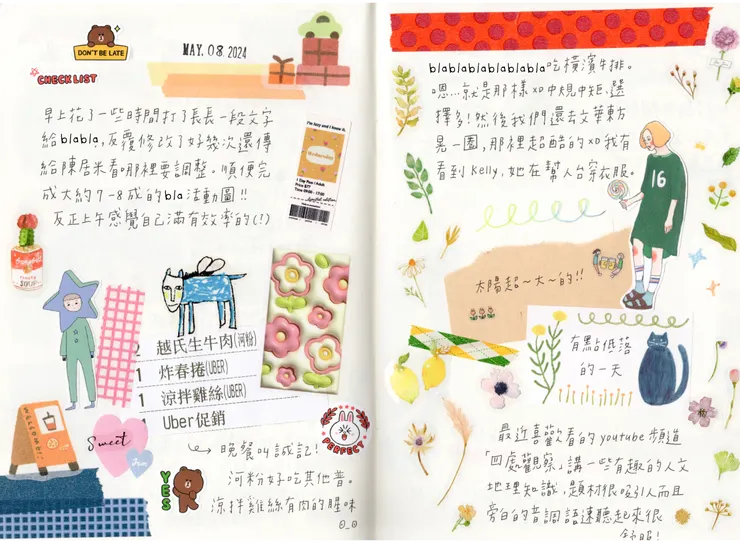 DON'T BE LATE
MAY.08.2024
CHECK LIST
早上花了一些時間打了長長一段文字
給blabla,反覆修改了好幾次還傳
給陳居米看。那裡要調整。順便完
成大約7-8成的bla活動圖!!
反正上午感覺自己滿有效率的(!)
I'm lazy and I know it.
Wednesday
1 Day Pass / Adult.
SOUP
越氏生牛肉(河粉)
1 炸春捲(UBER)
1 涼拌雞絲(UBER)
1 Uber促銷
Sweet
Jam
PERFECT
晚餐叫誠記!
YES
河粉好吃其他普。
涼拌雞絲有肉的腥味
blablablablablabla吃檳濱牛排。
嗯...就是那樣xD中規中矩選
擇多!然後我們還去文華東方
晃一圈,那裡超酷的xD我有
看到Kelly,她在幫人台穿衣服。
16
太陽超~大~的!!
有點低落
的一天
最近喜歡看的youtube頻道
「回處觀察」講一些有趣的人文
地理知識,題材很吸引人而且
旁白的音調語速聽起來很
舒服!